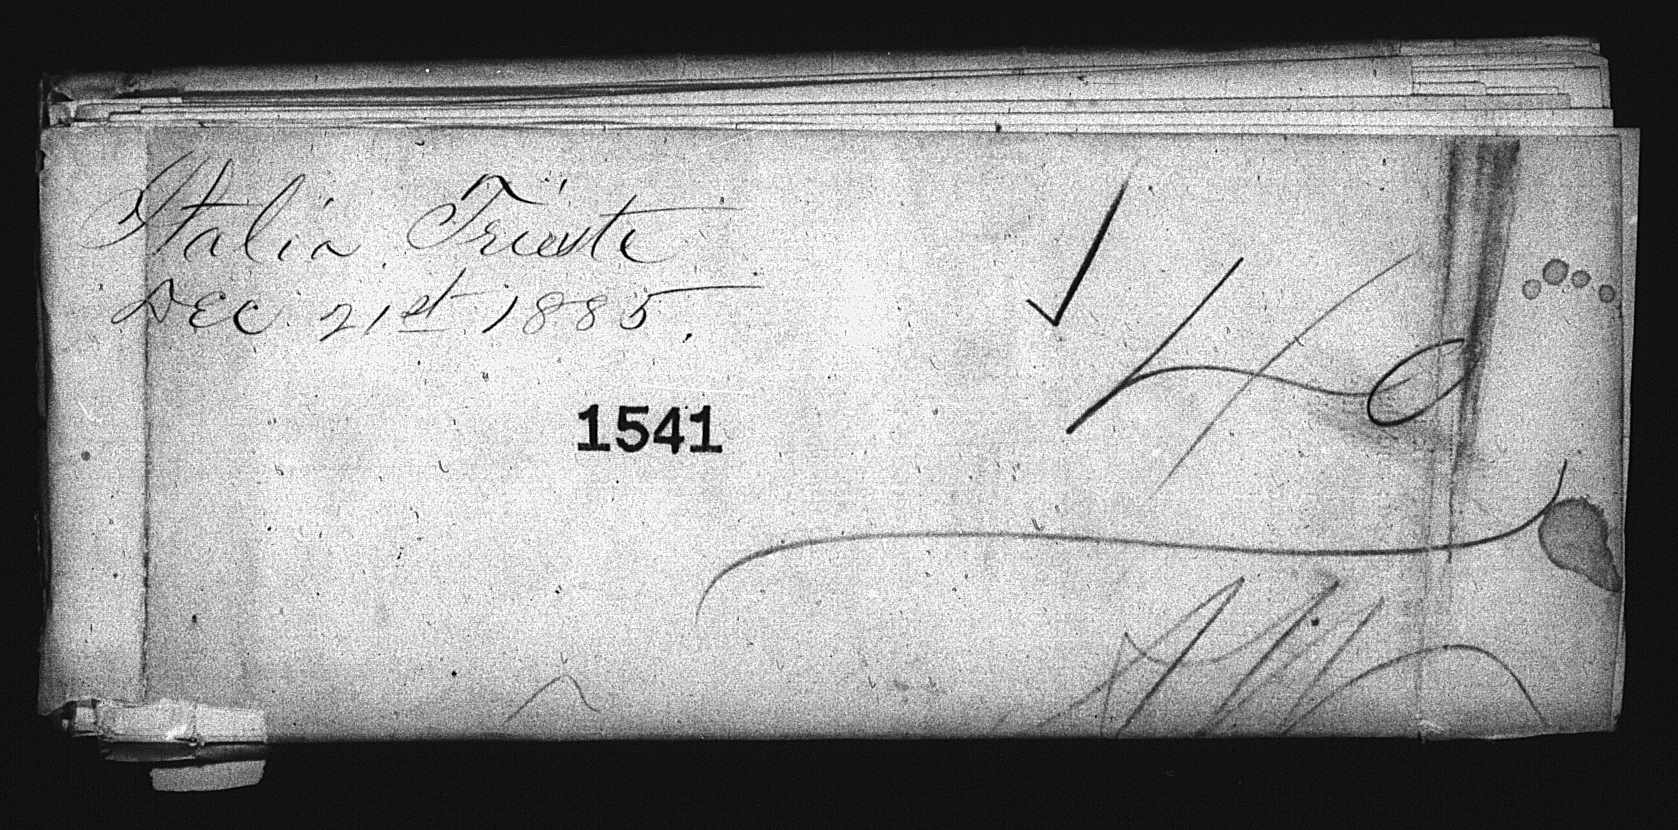 Italia Trieste
Dec. 21st 1885.
1541
40